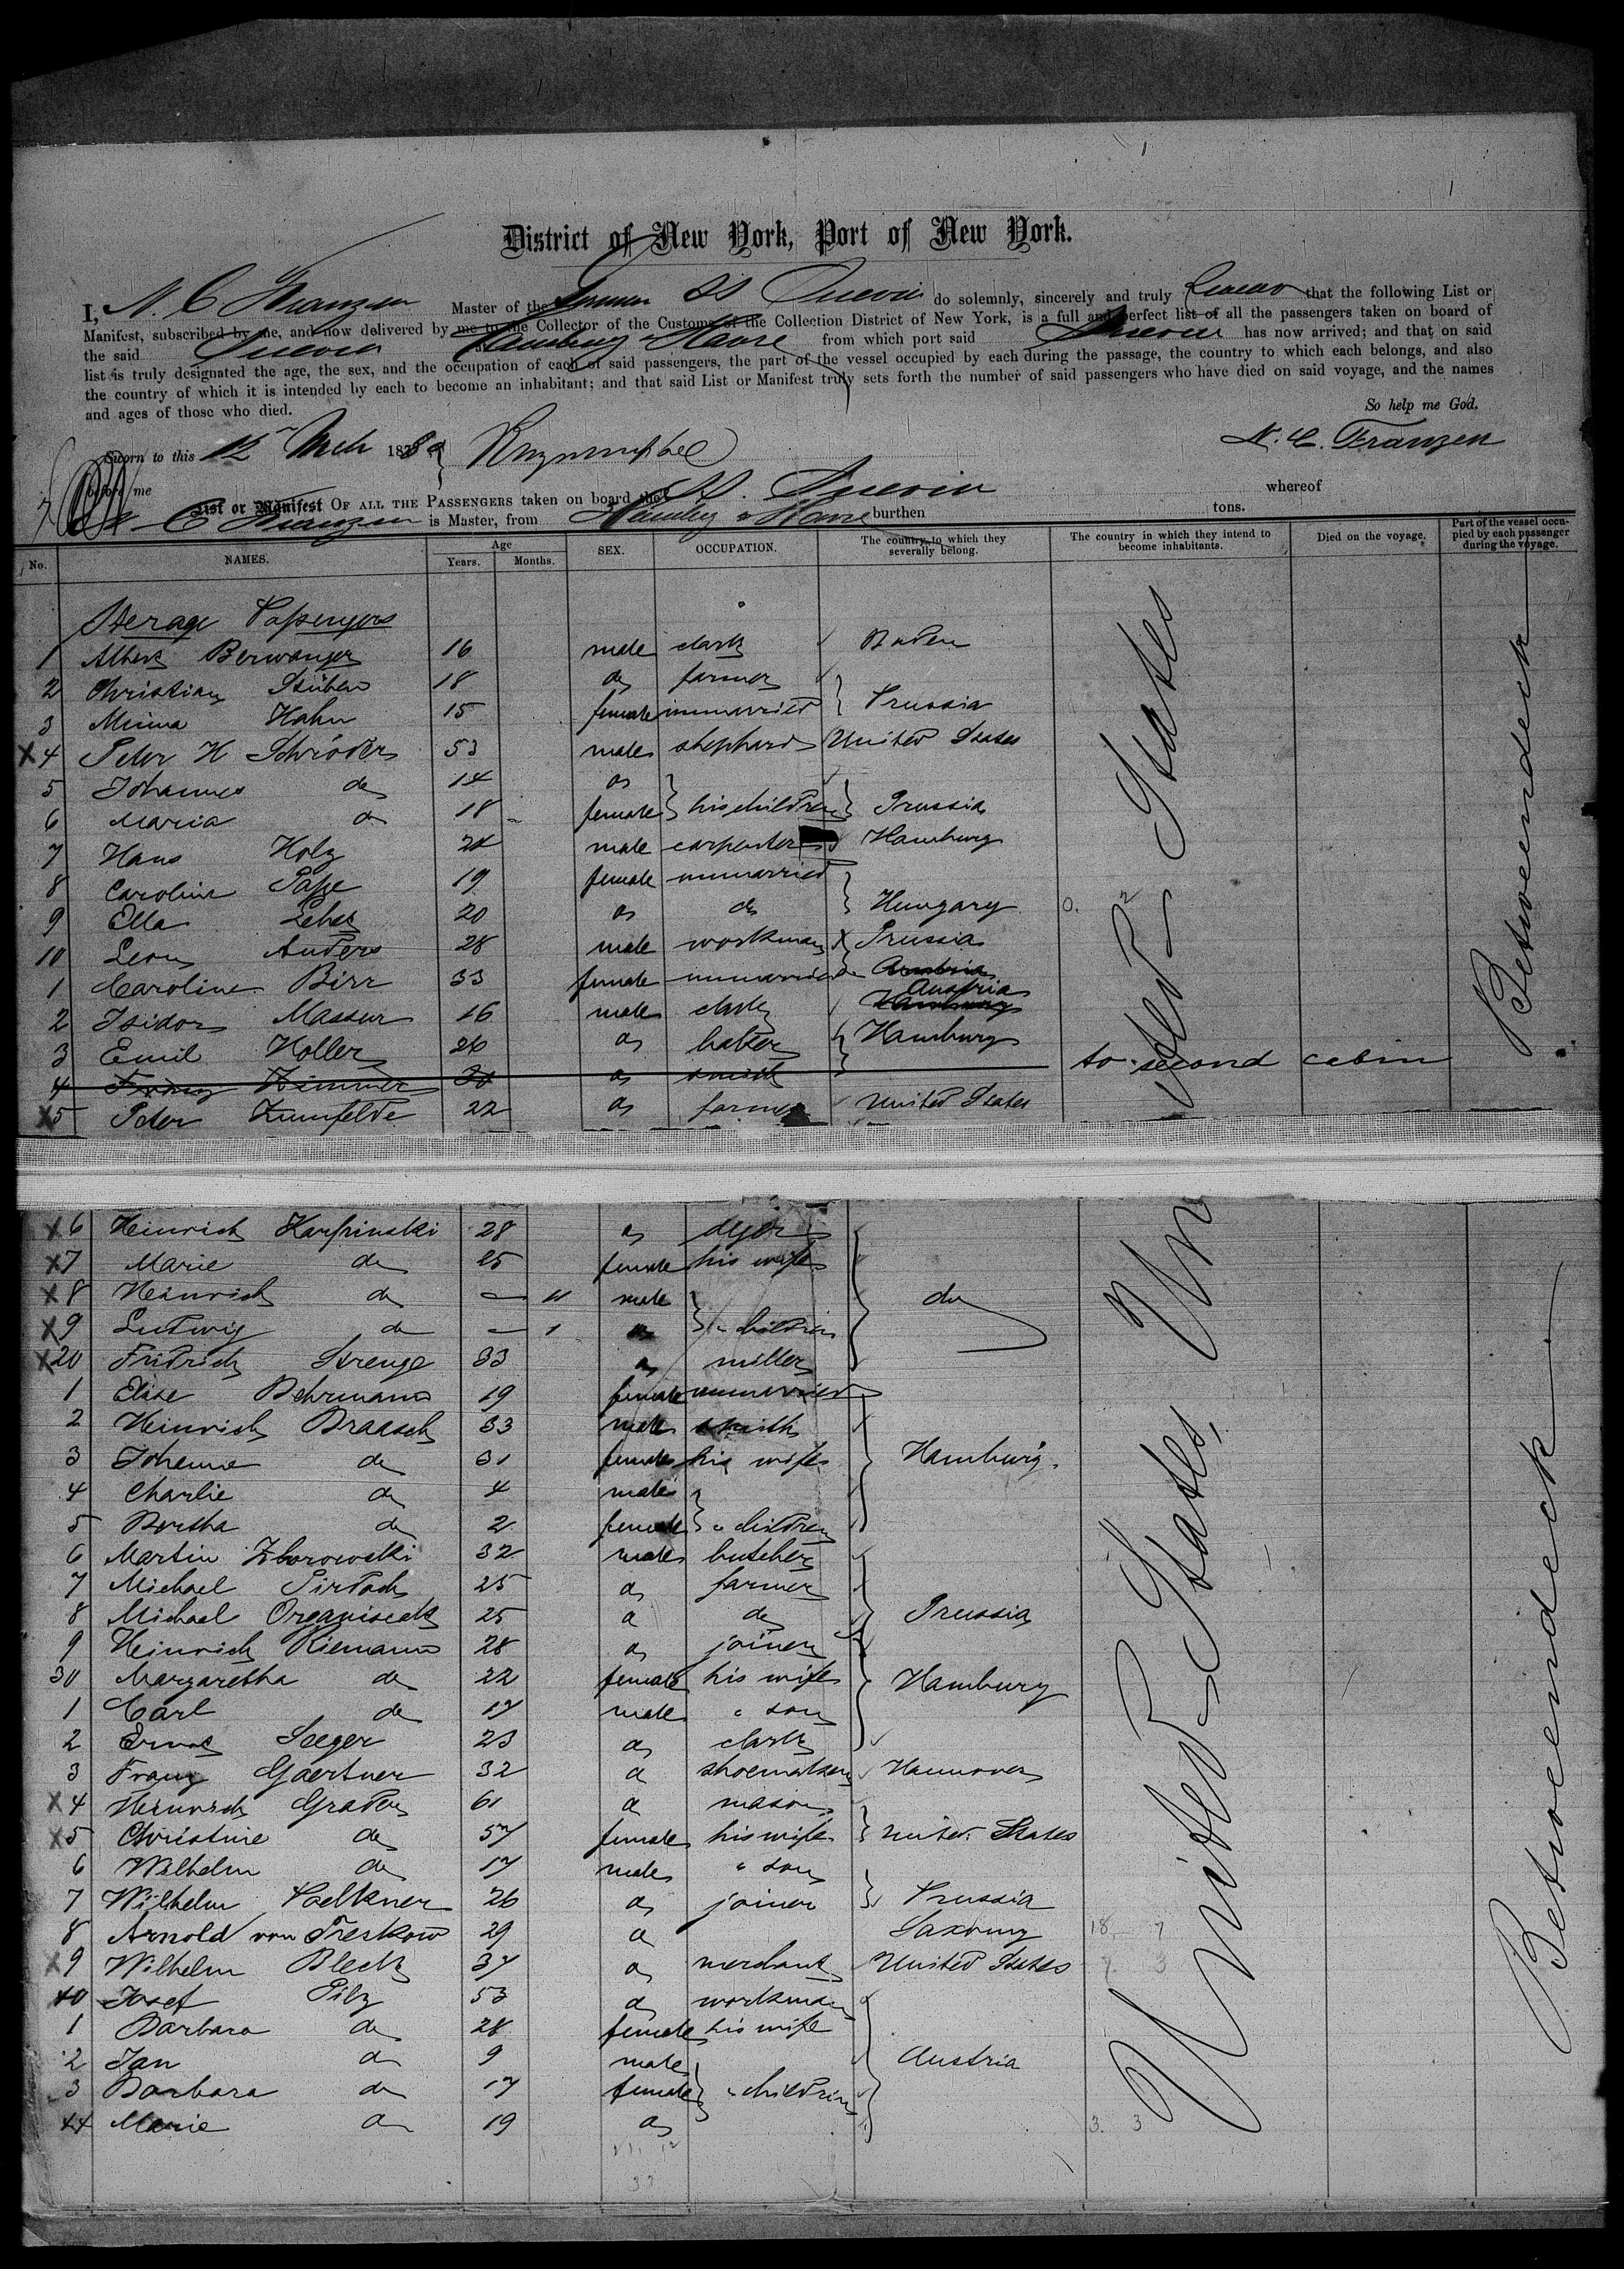 District of New York, Port of New York.
I, N. C. Franzen Master of the German SS Suevia do solemnly, sincerely and truly swear that the following List or
Manifest, subscribed by me, and now delivered by me to the Collector of the Customs of the Collection District of New York, is a full and perfect list of all the passengers taken on board of
the said Suevia Hamburg & Havre from which port said Suevia has now arrived; and that on said
list is truly designated the age, the sex, and the occupation of each of said passengers, the part of the vessel occupied by each during the passage, the country to which each belongs, and also
the country of which it is intended by each to become an inhabitant; and that said List or Manifest truly sets forth the number of said passengers who have died on said voyage, and the names
and ages of those who died.
So help me God,
Sworn to this 12 Mch 1880
N. C. Franzen
before me
List or Manifest OF ALL THE PASSENGERS taken on board the SS. Suevia whereof
N. C. Franzen is Master, from Hamburg & Havre burthen tons.
No. NAMES. Age Years. Months. SEX. OCCUPATION. The country to which they severally belong. The country in which they intend to become inhabitants. Died on the voyage. Part of the vessel occupied by each passenger during the voyage.
Sterage Passengers
1 Albert Berwanger 16 male clark Baden
2 Christian Stüben 18 do farmer
3 Minna Hahn 15 female unmarried Prussia
X4 Peter H Schröder 53 male shephard United States
5 Johannes do 14 do
6 Maria do 18 female his children Prussia
7 Hans Holz 24 male carpenter Hamburg
8 Carolina Passe 19 female unmarried
9 Ella 20 do do Hungary
10 Leon Anders 28 male workman Prussia
1 Caroline Birr 33 female unmarried Austria
2 Isidor Massur 16 male clark Hamburg Austria
3 Emil Holler 26 do baker Hamburg
4 Franz Zimmer 30 do smith to second cabin
X5 Peter Zumfelde 22 do farmer United States
X6 Heinrich Karpinski 28 do dyer
X7 Marie do 25 female his wife
X8 Heinrich do — 11 male do
X9 Ludwig do — 1 do " children
X20 Fridrich Strenge 33 do miller
1 Elise Behrmann 19 female unmarried
2 Heinrich Braasch 33 male smith
3 Johanna do 31 female his wife Hamburg.
4 Charlie do 4 male
5 Bertha do 2 female " children
6 Martin Zborowski 32 male butcher
7 Michael 25 do farmer
8 Michael Organiseck 25 do do Prussia
9 Heinrich Riemann 28 do joiner
30 Margaretha do 22 female his wife Hamburg
1 Carl do 17 male " son
2 Ernst Seeger 23 do clark
3 Franz Gaertner 32 do shoemaker Hannover
X4 Heinrich Grader 61 do mason
X5 Christine do 57 female his wife United States
6 Wilhelm do 17 male " son
7 Wilhelm Voelkner 26 do joiner Prussia
8 Arnold von Treskow 29 do Saxony
X9 Wilhelm Bleck 37 do merchant United States
40 Josef Pilz 53 do workman
1 Barbara do 28 female his wife
2 Jan do 9 male Austria
3 Barbara do 17 female " children
44 Marie do 19 do
United States
United States
Betweendeck
Betweendeck